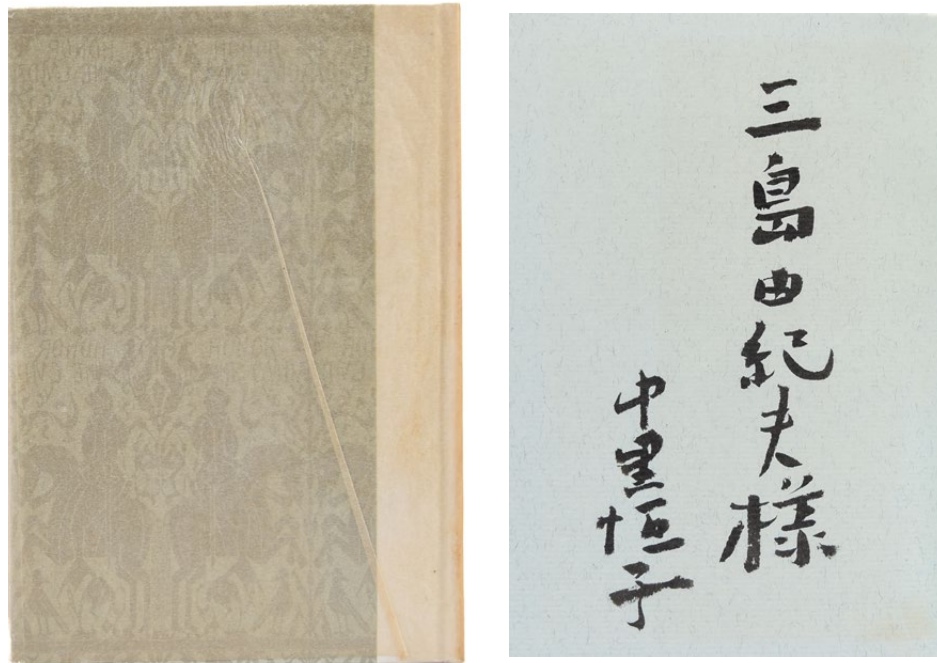 三島由紀夫様
中里恒子